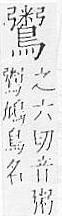 之六切音粥
鳩鳥名